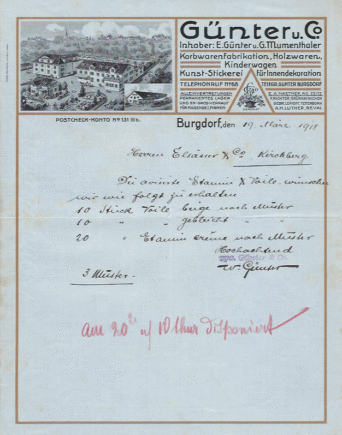 Günter u. Co
Inhaber: E. Günter u. G. Mumenthaler
Korbwarenfabrikation, Holzwaren,
Kinderwagen
Kunst-Stickerei für Innendekoration
TELEPHONRUF Nº 68
TELEGR. GÜNTER BURGDORF
ALLEINVERTRETUNGEN
PERMANENTES LAGER
POSTCHECK-KONTO Nº 131 IIIb.
Burgdorf, den 19. März 1918
Herren Elsaesser & Co Kirchberg
Etamin & Voile, wünschen
wir wie folgt zu erhalten
10 Stück Voile beige nach Muster
10 " " gebleicht " "
20 " Etamin crème nach Muster
Hochachtend
ppa. Günter & Co.
W. Günter
3 Muster.
am 20. 10 Uhr disponiert